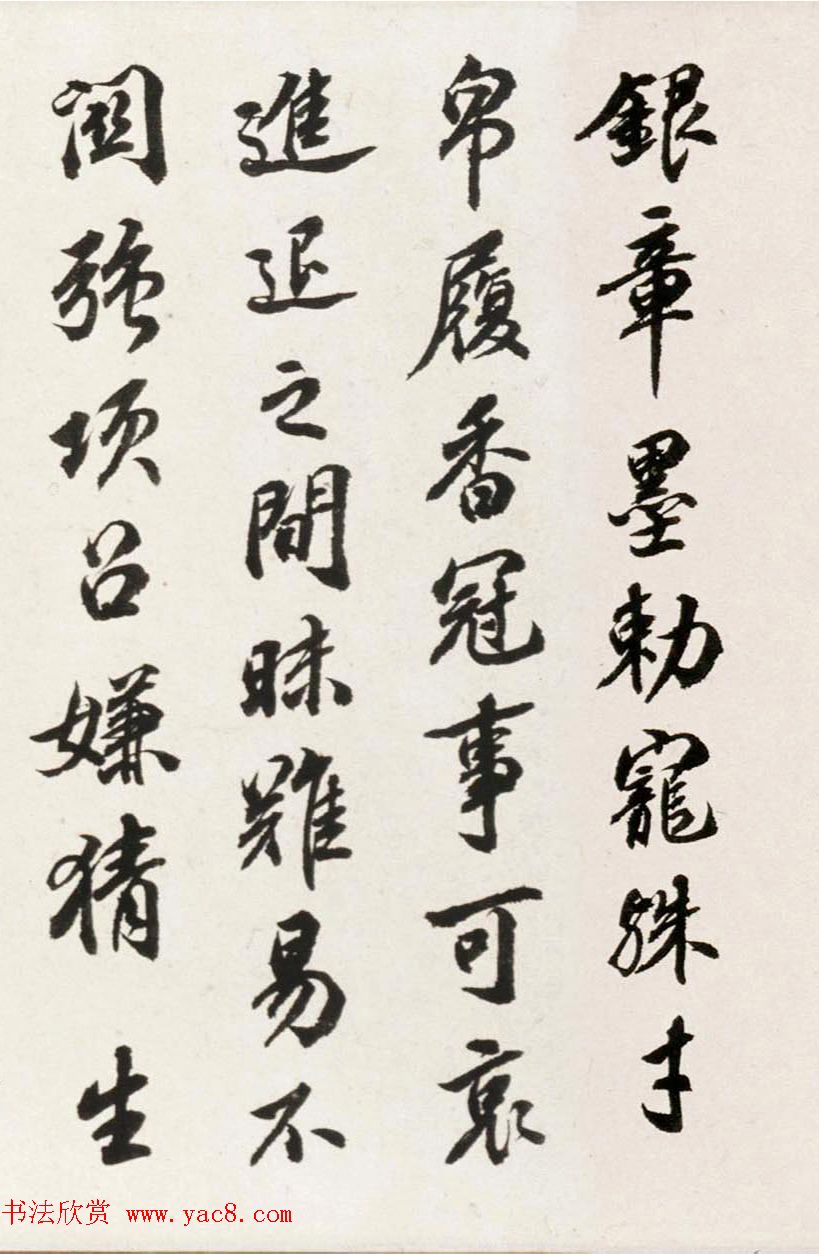 銀章墨勅寵殊才
帛履香冠事可哀
進退之間昧難易不
關強項召嫌猜生
书法欣赏 www.yac8.com